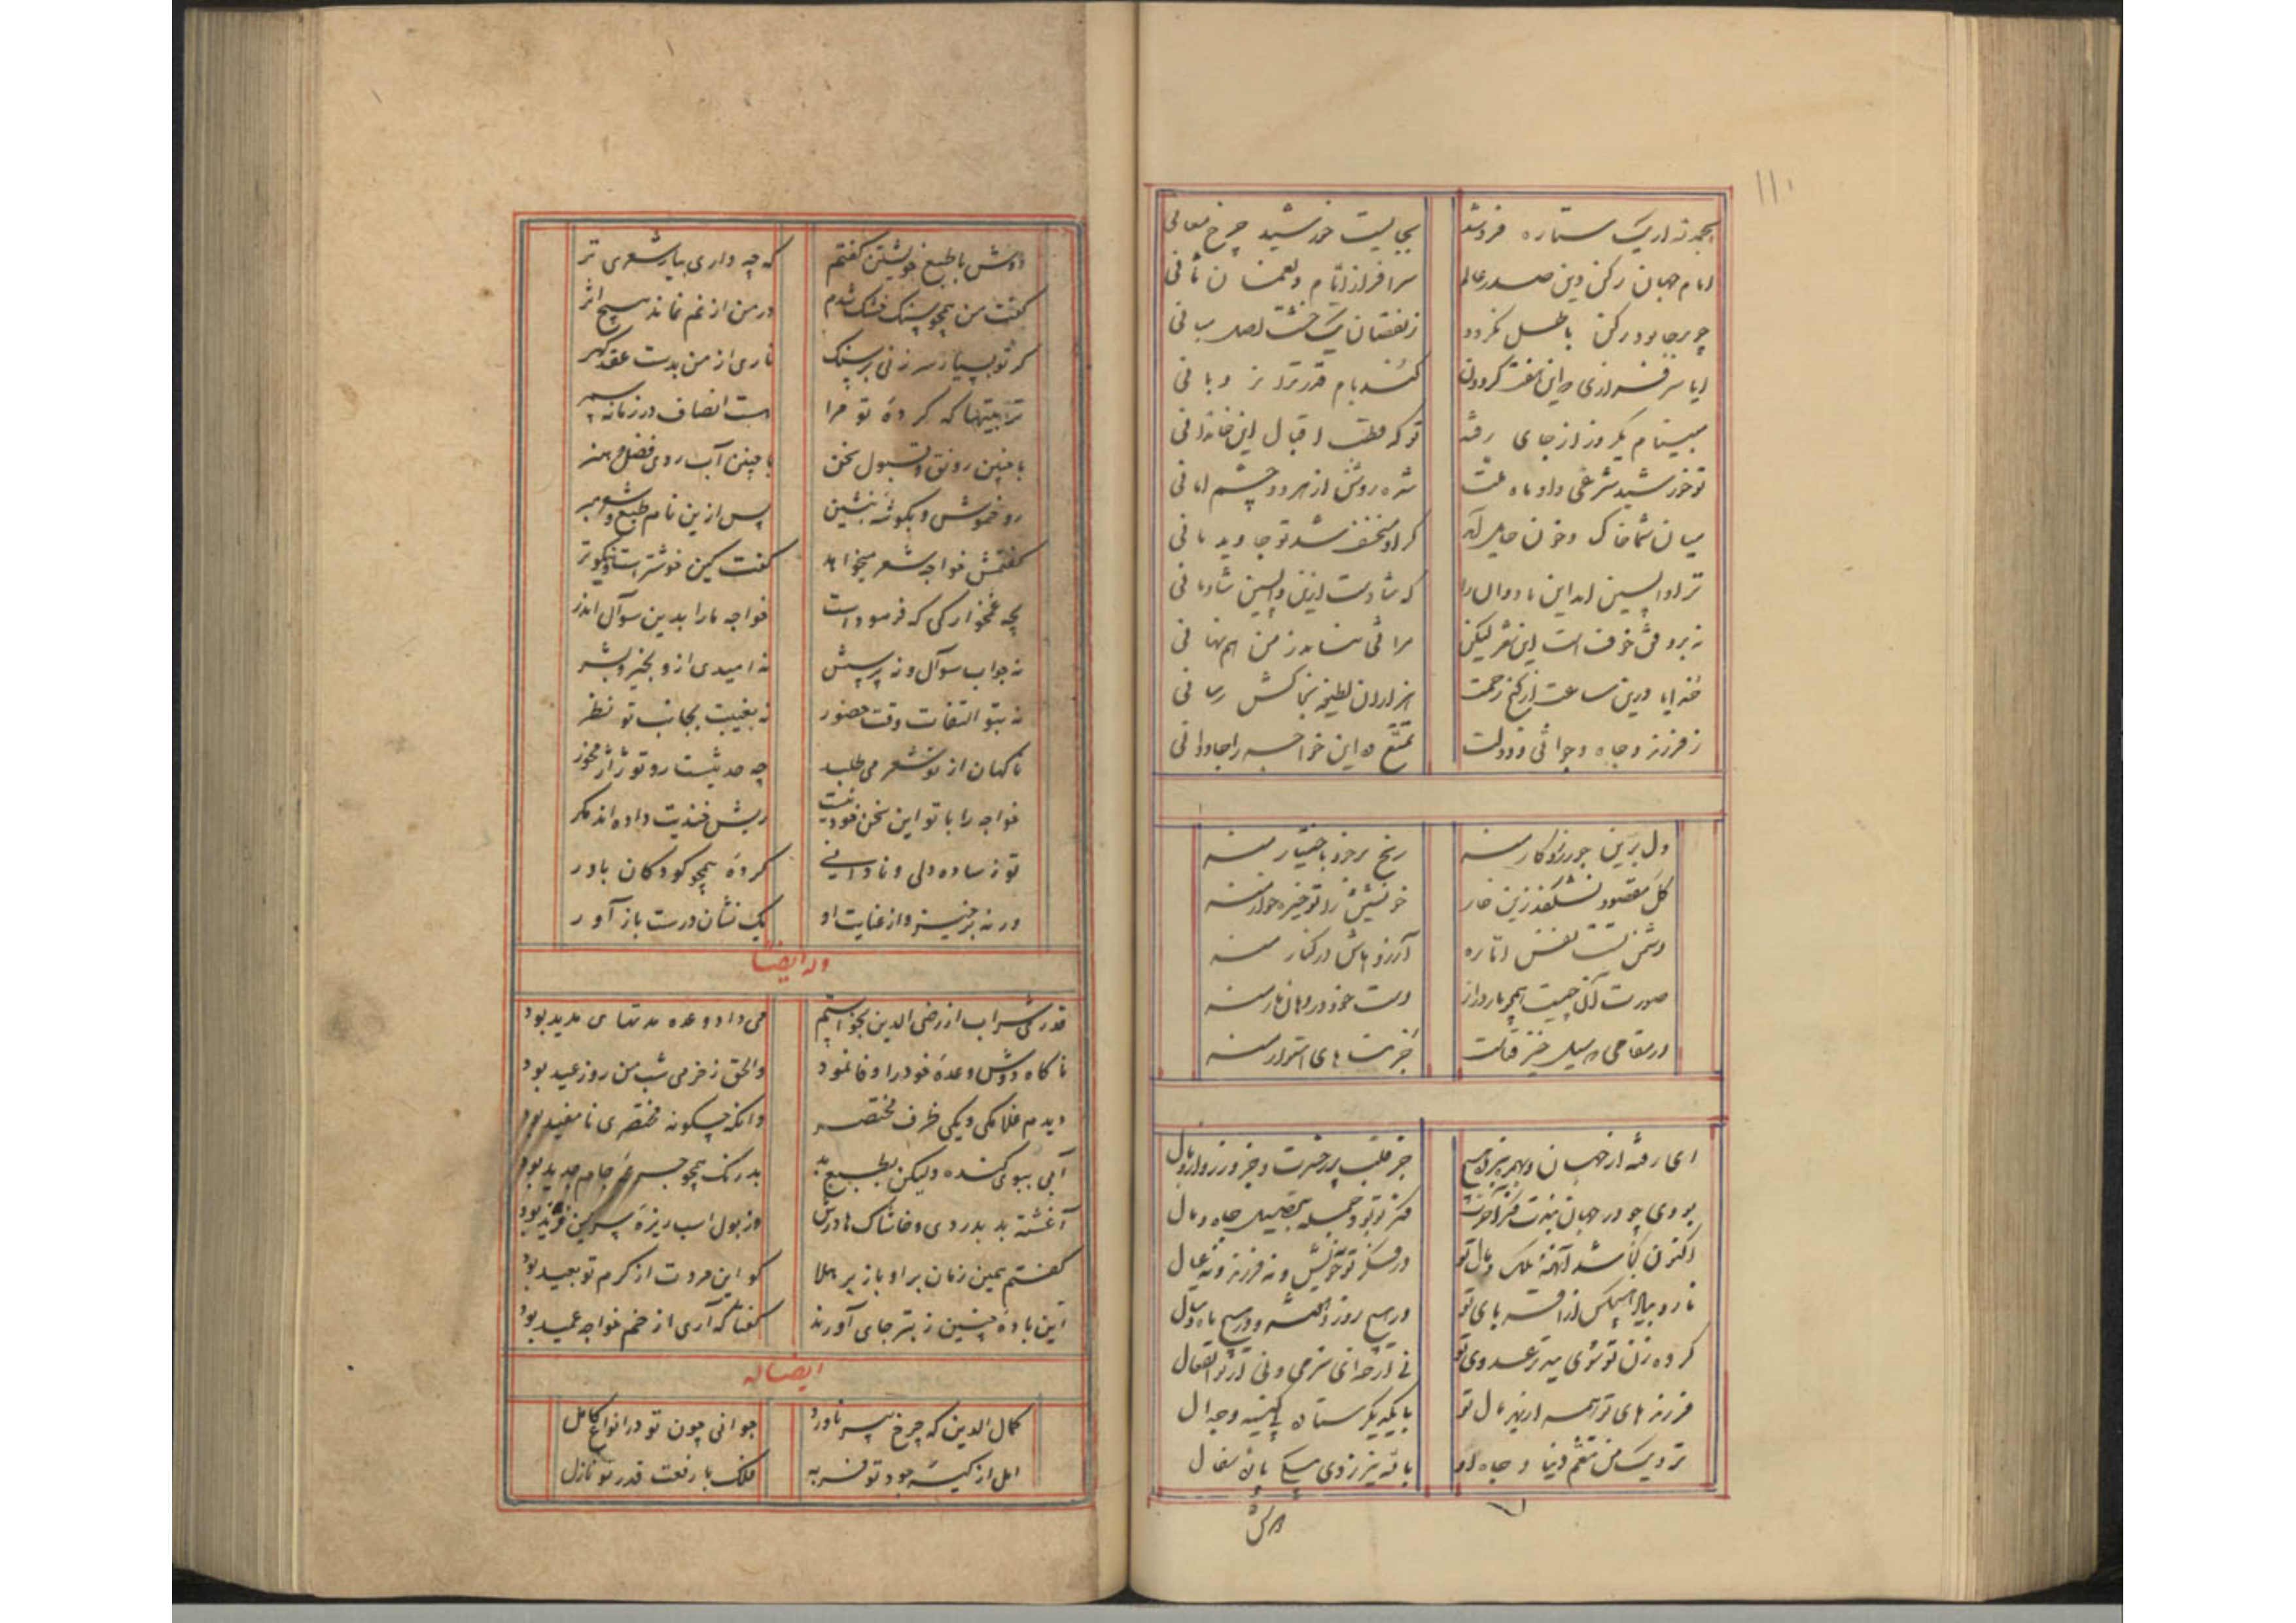 ۱۱۰
بحمد ستاره فروشد بجاییست خورشید چرخ معانی
امام جهان رکن دین صدر عالم سرافراز ایام و نعمان ثانی
چو برجا بود رکن باطل نگردد ز نقصان یک خشت اصل مبانی
ایا سرفرازی که این هفت گردون کنند بام قدر ترا نردبانی
مبینام یکروز از جای رفته تو که قطب اقبال این خاندانی
تو خورشید شرعی و او ماه ملت شده روشن از هر دو چشم امانی
میان شما خاک و خون حایل آمد گر او منخسف شد تو جاوید مانی
ترا واپسین باد این ماه دوال را که شادیست ازین واپسین شادمانی
نه بر وفق خوفست این شعر لیکن مراثی نباشد ز من هم تهانی
خدایا درین ساعت از گنج رحمت هزاران لطیفه بخاکش رسانی
ز فرزند و جاه و جوانی و دولت تمتع ده این خواجه را جاودانی
دل برین جور روزگار منه رنج بر خود باختیار منه
گل مقصود نشکفد زین خار خویشتن را تو خیره خوار منه
دشمن تست نفس اماره آرزو هاش در کنار منه
صورت آن چیست همچو مار دراز دست خود در دهان مار منه
در مقامی که سیل خیز فناست خرت های استوار منه
ای رفته از جهان و بهمره نبرده هیچ جز قلب پر حسرت و جز وزر و وبال
بودی چو در جهان نبدت فکر آخرت فکر تو بود جمله بتحصیل جاه و مال
اکنون کجا شد آنهمه ملک و مال تو در فکر تو نه خویش و نه فرزند و نه عیال
نارد بیاد هیچکس از اقربای تو در هیچ روز و هفته و در هیچ ماه و سال
کرده زن تو شوی بتر عدوی تو نی از خدای شرمی و نی از تو انفعال
فرزند های تو همه از بهر مال تو با یکدیگر ستاده به کینه و جدال
نزدیک من تنعم دنیا و جاه او باله نیرزدی به یکی پاره سفال
دوش با طبع خویشتن گفتم که چه داری بیار شعری تر
گفت من همچو سنگ خشک شدم در من از نم نماند هیچ اثر
گر تو بسیار سر زنی بر سنگ ناری از من بدست عقد گهر
تربیتها که کرده تو مرا هست انصاف در زمانه سمر
با چنین رونق و قبول سخن با چنین آب روی فضل و هنر
رو خموش و بگوشه بنشین پس ازین نام طبع و شعر مبر
گفتمش خواجه شعر میخواهد گفت کین خوشتر است و نیکوتر
بچه غمخوارکی که فرمودست خواجه مارا بدین سوآل اندر
نه جواب سوآل و نه پرسش نه امیدی ازو بخیر و بشر
نه بتو التفات وقت حضور نه بغیبت بجانب تو نظر
ناگهان از تو شعر می طلبد چه حدیثست رو تو ژاژ مخور
خواجه را با تو این سخن خود نیست ریش خندیت داده اند مگر
تو ز ساده دلی و نادانی کرده همچو کودکان باور
ور نه برخیز و از عنایت او یک نشان درست باز آور
وله ایضا
قدری شراب از رضی الدین بخواستم می داد وعده مدتهای مدید بود
ناگاه دوش وعده خود را وفا نمود والحق ز خرمی شب من روز عید بود
دیدم غلامکی و یکی ظرف مختصر وانگه چگونه مختصری نامفید بود
آبی ببوی گنده ولیکن بطبع بد بد رنگ همچو جرعه جام صدید بود
آغشته بد بدردی و خاشاک ها درش وز بول اسب ریزه سرگین فزید بود
گفتم همین زمان بر او باز بر هلا کو این مروت از کرم تو بعید بود
این باده چنین ز بتر جای آورند گفتا که آری از خم خواجه عمید بود
ایضا له
کمال الدین که چرخ پیر ناورد جوانی چون تو در انواع کامل
امل از کیسه جود تو فربه فلک با رفعت قدر تو نازل